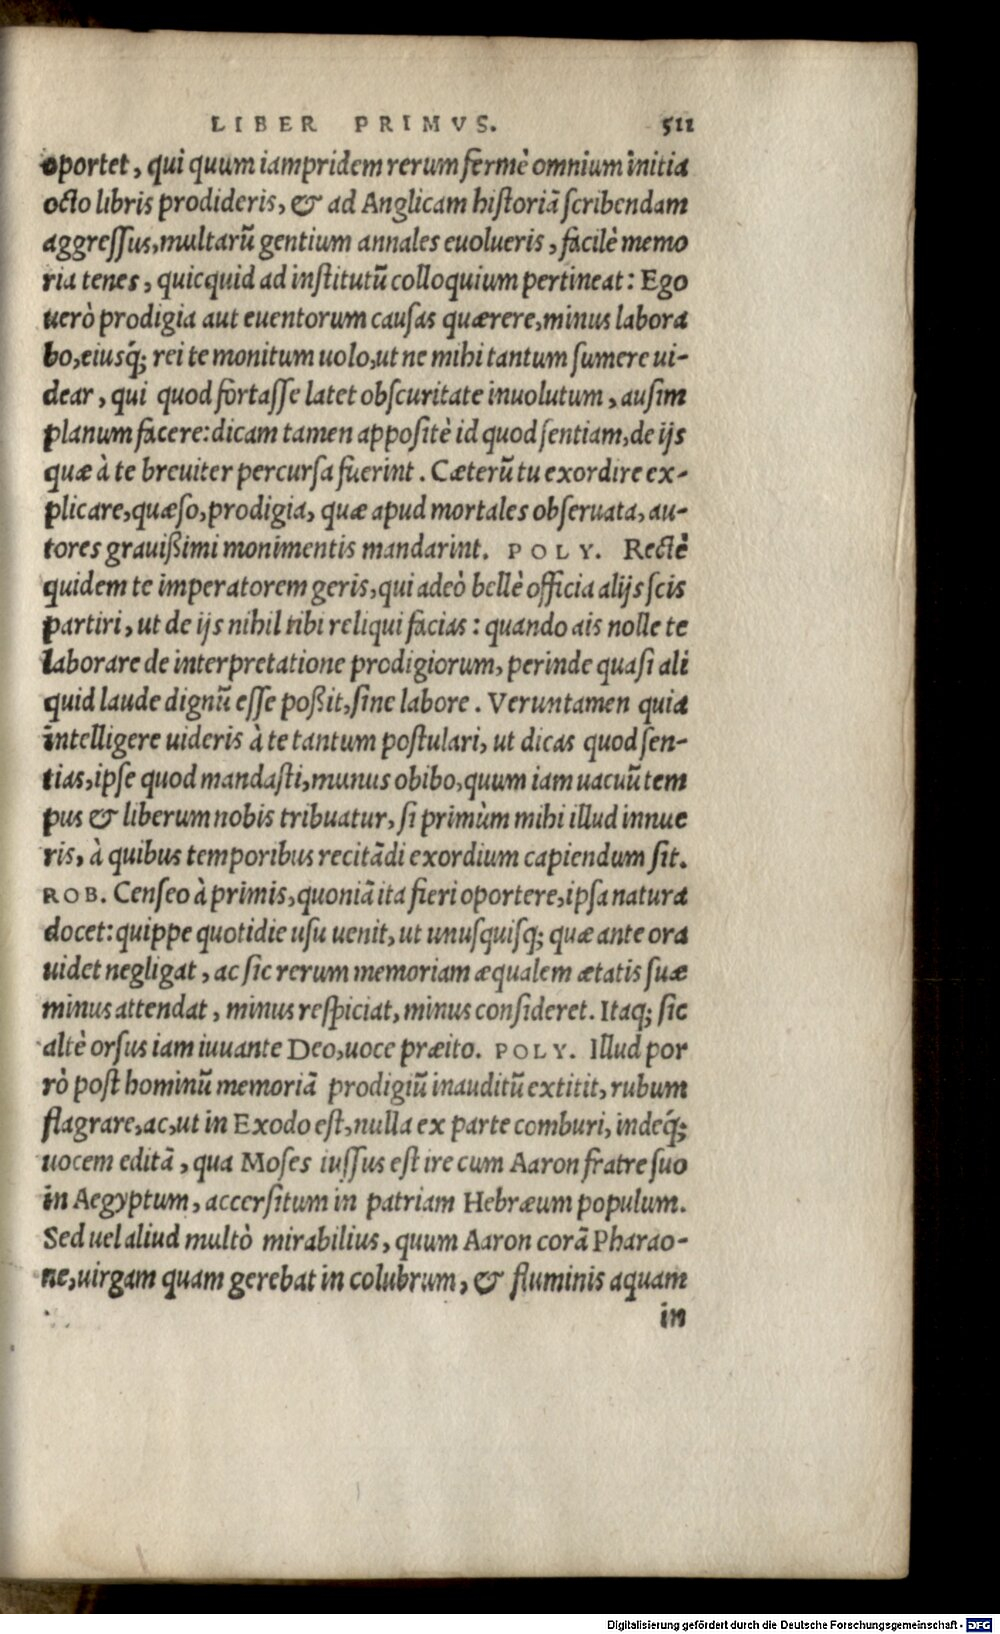 LIBER PRIMVS. 511
oportet, qui quum iampridem rerum fermè omnium initia
octo libris prodideris, & ad Anglicam historiã scribendam
aggressus, multarũ gentium annales euolueris, facilè memo
ria tenes, quicquid ad institutũ colloquium pertineat: Ego
uerò prodigia aut euentorum causas quærere, minus labora
bo, eiusq́; rei te monitum uolo, ut ne mihi tantum sumere ui-
dear, qui quod fortasse latet obscuritate inuolutum, ausim
planum facere: dicam tamen appositè id quod sentiam, de ijs
quæ à te breuiter percursa fuerint. Cæterũ tu exordire ex-
plicare, quæso, prodigia, quæ apud mortales obseruata, au-
tores grauißimi monimentis mandarint. POLY. Rectè
quidem te imperatorem geris, qui adeò bellè officia alijs scis
partiri, ut de ijs nihil tibi reliqui facias: quando ais nolle te
laborare de interpretatione prodigiorum, perinde quasi ali
quid laude dignũ esse poßit, sine labore. Veruntamen quia
intelligere uideris à te tantum postulari, ut dicas quod sen-
tias, ipse quod mandasti, munus obibo, quum iam uacuũ tem
pus & liberum nobis tribuatur, si primùm mihi illud innue
ris, à quibus temporibus recitãdi exordium capiendum sit.
ROB. Censeo à primis, quoniã ita fieri oportere, ipsa natura
docet: quippe quotidie usu uenit, ut unusquisq; quæ ante ora
uidet negligat, ac sic rerum memoriam æqualem ætatis suæ
minus attendat, minus respiciat, minus consideret. Itaq; sic
altè orsus iam iuuante Deo, uoce præito. POLY. Illud por
rò post hominũ memoriã prodigiũ inauditũ extitit, rubum
flagrare, ac, ut in Exodo est, nulla ex parte comburi, indeq́;
uocem editã, qua Moses iussus est ire cum Aaron fratre suo
in Aegyptum, accersitum in patriam Hebræum populum.
Sed uel aliud multò mirabilius, quum Aaron corã Pharao-
ne, uirgam quam gerebat in colubrum, & fluminis aquam
in
Digitalisierung gefördert durch die Deutsche Forschungsgemeinschaft - DFG